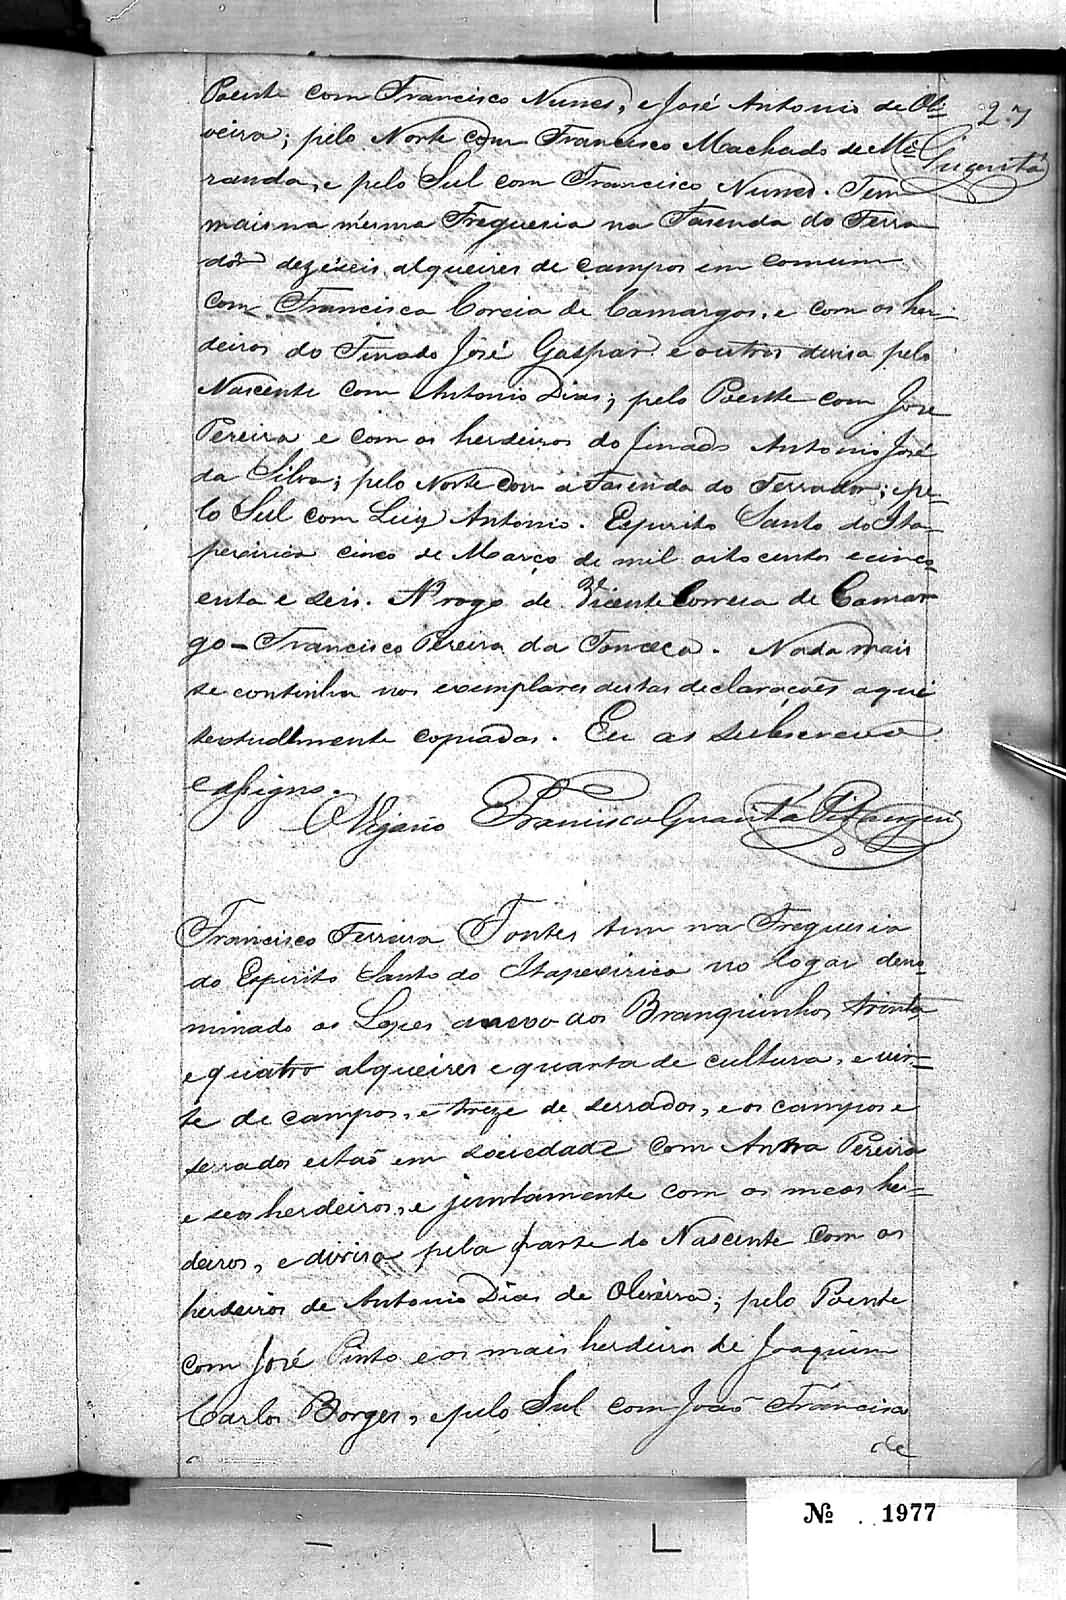 Poente com Francisco Nunes, e José Antonio de Oli-
27
veira; pelo Norte com Francisco Machado de Mi-
randa, e pelo Sul com Francisco Nunes. Tem
mais na mesma Freguesia na Fasenda do Ferra
dôr dezeseis alqueires de campos em comum
com Francisca Correia de Camargos, e com os her-
deiros do Finado José Gaspar e outros divisa pelo
Nascente com Antonio Dias; pelo Poente com José
Pereira e com os herdeiros do finado Antonio José
da Silva; pelo Norte com a Fasenda do Ferrador; epe-
lo Sul com Luiz Antonio. Espirito Santo do Ita-
pecirica cinco de Março de mil oitocentos ecinco-
enta e seis. A rogo de Vicente Correia de Camar
go - Francisco Pereira da Fonceca. Nada mais
se continha nos exemplares destas declarações aqui
textualmente copiadas. Eu as subscrevo
e assigno.
O Vigario Francisco Guarita Pitangui
Francisco Ferreira Fontes tem na Freguesia
do Espirito Santo do Itapecirica no logar deno-
minado os Lopes anexo aos Branquinhos trinta
e quatro alqueires e quarta de cultura, e vin-
te de campos, e treze de serrados, e os campos e
serrados estaõ em sociedade com Anna Pereira
e seos herdeiros, e juntamente com os meos her-
deiros, e divisa pela parte do Nascente com os
herdeiros de Antonio Dias de Oliveira; pelo Poente
com José Pinto e os mais herdeiros de Joaquim
Carlos Borges, epelo Sul com Joaõ Francisco
de
Nº 1977